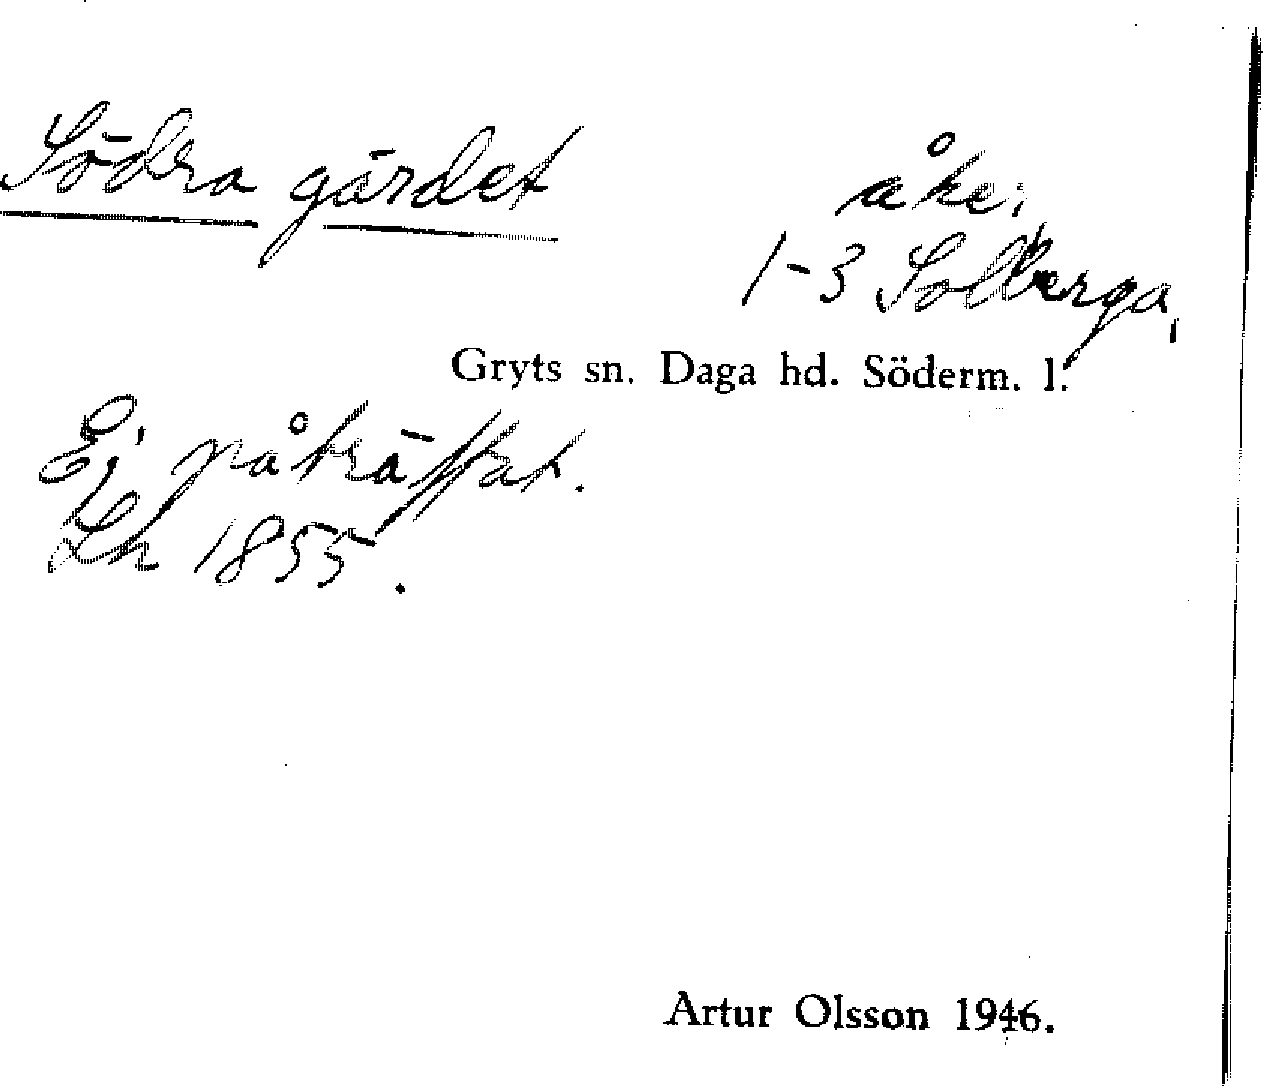 Södra gärdet
åker
1-3 Solberga,
Gryts sn. Daga hd. Söderm. l.
Ej påträffat.
Lh 1855.
Artur Olsson 1946.